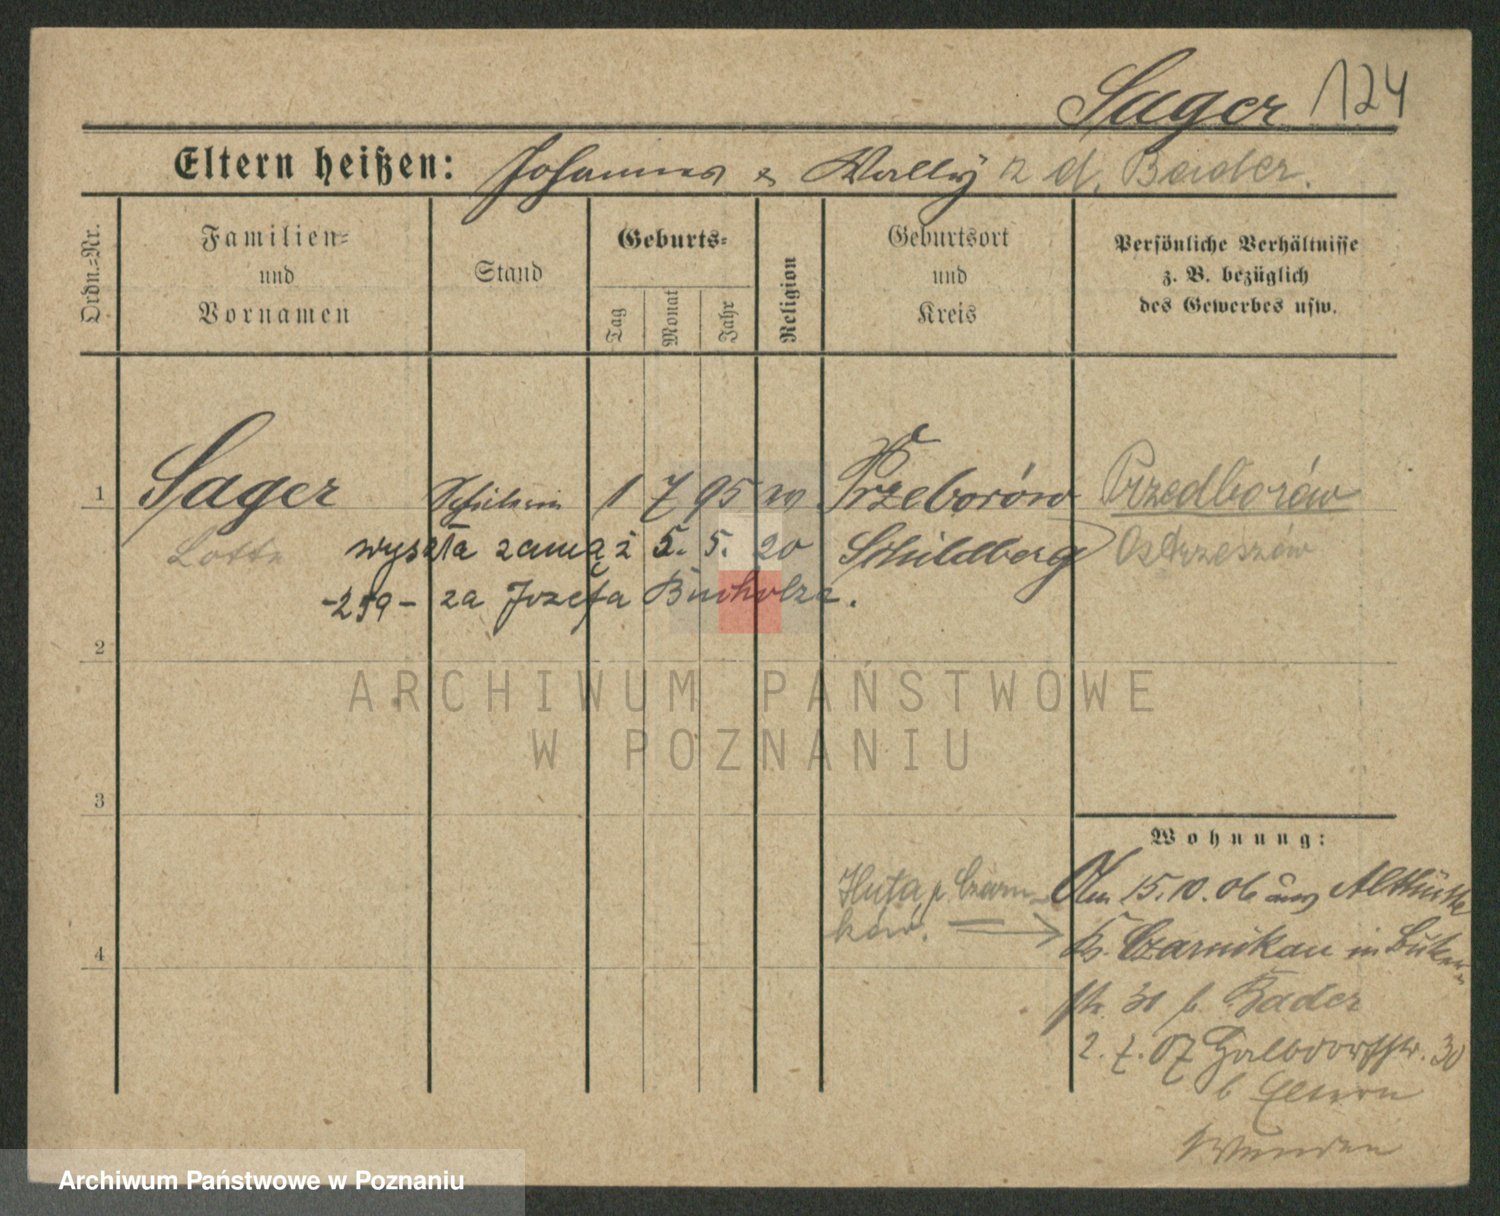 Sager 124
Eltern heißen: Johannes & Wally z d. Bader.
Ordn.-Nr.
Familien-
und
Vornamen
Stand
Geburts-
Tag
Monat
Jahr
Religion
Geburtsort
und
Kreis
Persönliche Verhältnisse
z. B. bezüglich
des Gewerbes usw.
1 Sager Schülerin 1 7 95 Przeborów Przedborów
Lotte wyszła zamąż 5. 5. 20 Schildberg Ostrzeszów
za Józefa Bucholza.
2
ARCHIWUM PAŃSTWOWE
W POZNANIU
3
Wohnung:
Huta, p. Czarn-
ków.
Am 15.10.06 aus Althütte
4
Kr. Czarnikau in Buker-
str. 30 b. Bader
2. 7. 07 Halbdorfstr. 30
b Eltern
Archiwum Państwowe w Poznaniu